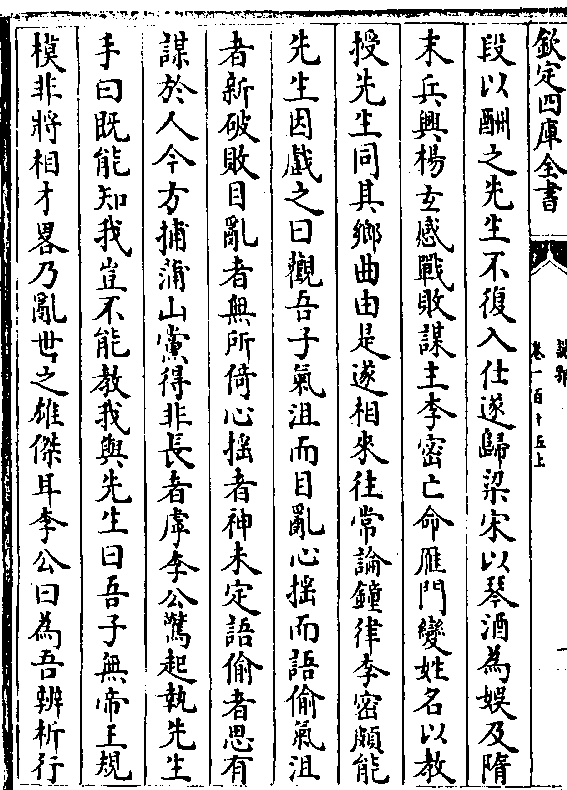 欽定四庫全書
說郛
卷一百十五上
段以酬之先生不復入仕遂歸梁宋以琴酒為娛及隋
末兵興楊玄感戰敗謀主李密亡命雁門變姓名以教
授先生同其鄉曲由是遂相來往常論鐘律李密頗能
先生因戲之曰觀吾子氣沮而目亂心揺而語偷氣沮
者新破敗目亂者無所倚心揺者神未定語偷者思有
謀於人今方捕蒲山黨得非長者虖李公驚起執先生
手曰既能知我豈不能教我與先生曰吾子無帝王規
模非將相才畧乃亂世之雄傑耳李公曰為吾辨析行